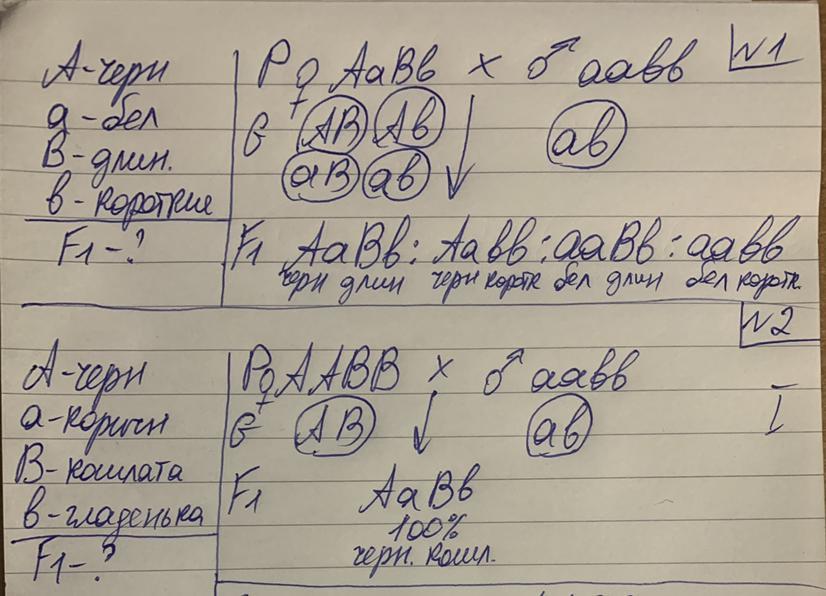 N1
А-черн
а-бел
В-длин.
в-короткие
F1-?
P ♀ АаВв × ♂ аавв
G АВ Ав ав
аВ ав
F1 АаВв : Аавв : ааВв : аавв
черн длин черн коротк бел длин бел коротк.
N2
А-черн
а-коричн
В-кошлата
в-гладенька
F1-?
P ♀ ААВВ × ♂ аавв
G АВ ав
I
F1 АаВв
100%
черн. кошл.